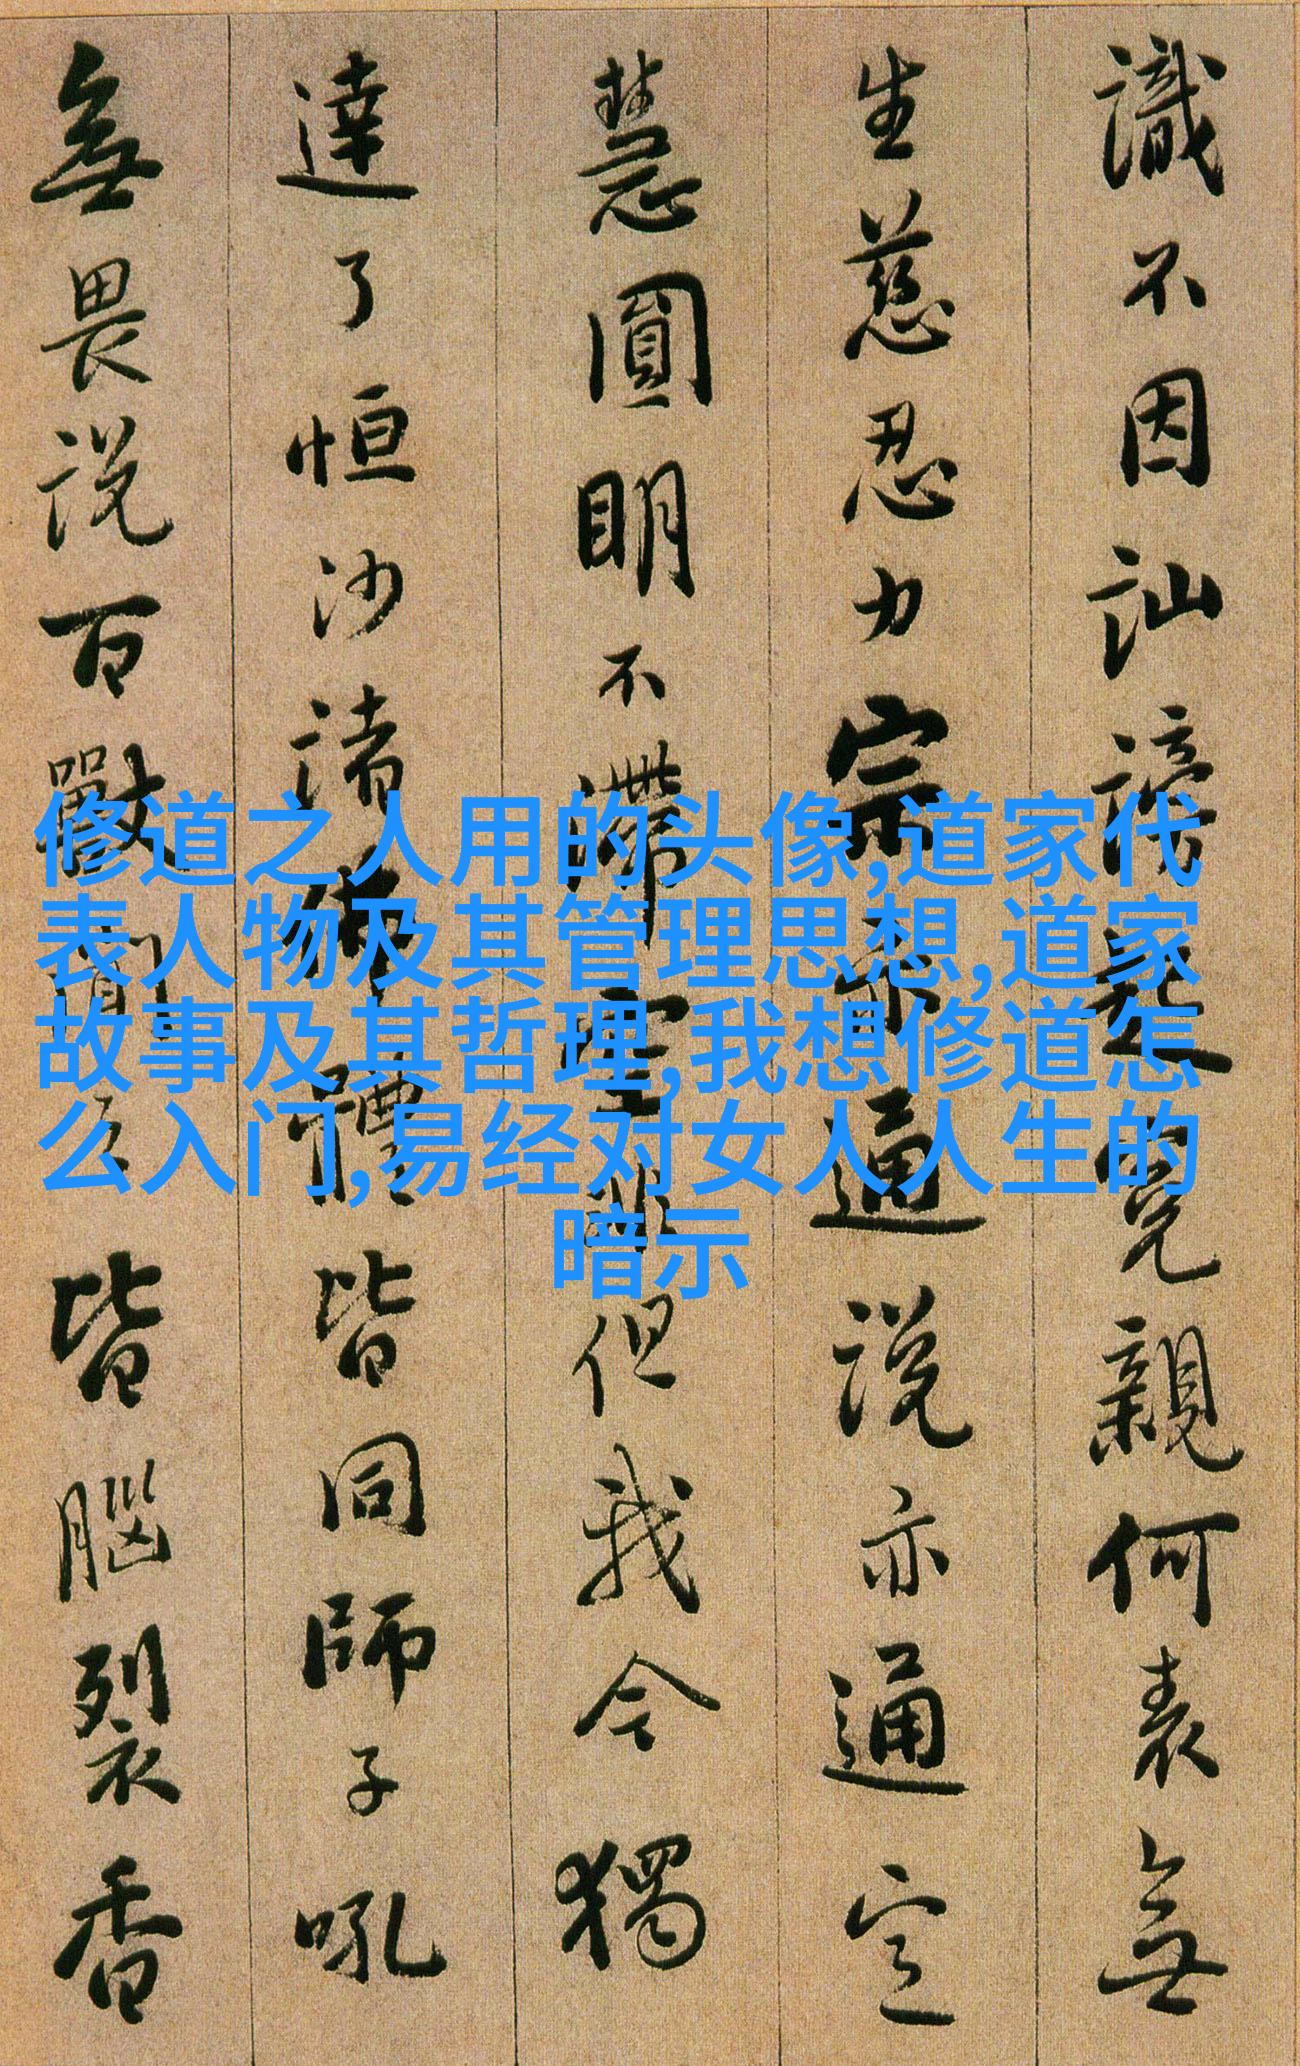 識不因訕謗起冤親何表無
生慈忍力宗亦通說亦通定
慧圓明不滯空非但我今獨
達了恒沙諸佛體皆同師子吼
無畏說百獸聞之皆腦裂香
修道之人用的头像,道家代
表人物及其管理思想,道家
故事及其哲理,我想修道怎
么入门,易经对女人人生的
暗示